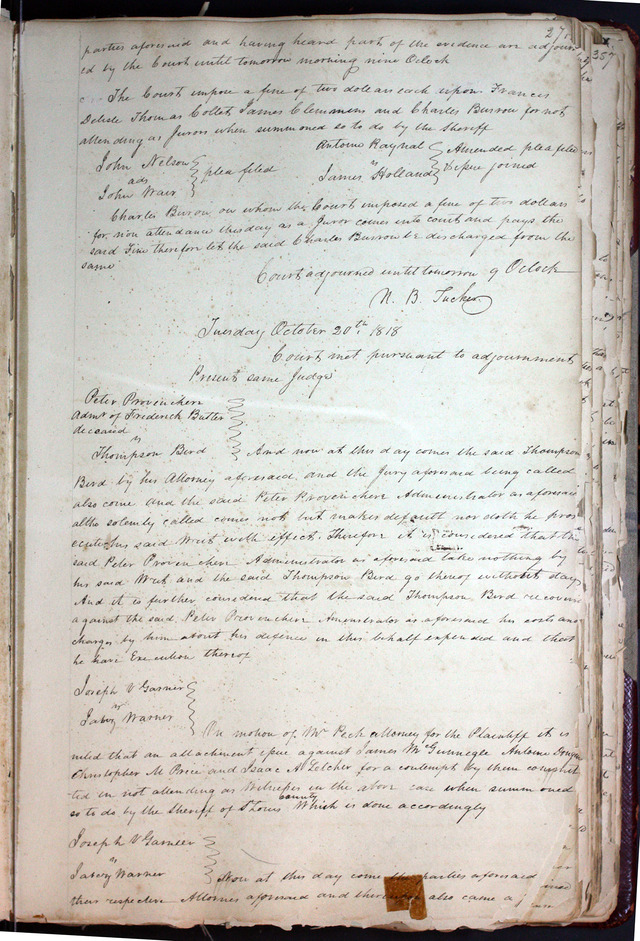 27
357
parties aforesaid and having heard part of the evidence are adjourn
ed by the Court until tomorrow morning nine Oclock
The Court impose a fine of two dollars each upon Francis
Delisle Thomas Collet James Clemmens and Charles Burrow for not
attending as Jurors when summoned so to do by the Sheriff
John Nelson
ads
John Wair
plea filed
Antoine Raynal
vs
James Holland
Amended plea filed
& Issue joined
Charles Burrow on whom the Court imposed a fine of two dollars
for non attendance this day as a Juror comes into court and pays the
said Fine therefore let the said Charles Burrow be discharged from the
same
Court adjourned until tomorrow 9 Oclock
N. B. Tucker
Tuesday October 20th 1818
Court met pursuant to adjournment
Present same Judge
Peter Provenchere
Admr of Frederick Butter
deceased
vs
Thompson Bird
And now at this day comes the said Thompson
Bird by his Attorney aforesaid, and the Jury aforesaid being called
also come and the said Peter Provenchere Administrator as aforesaid
altho solemnly called comes not but makes default nor doth he pros
ecute his said Writ with effect. Therefore it is considered that the
said Peter Provenchere Administrator as aforesaid take nothing by
his said Writ and the said Thompson Bird go thereof without day
And it is further considered that the said Thompson Bird recover
against the said Peter Provenchere Aministrator as aforesaid his costs and
charges by him about his defence in this behalf expended and that
he have Execution thereof
Joseph V Garnier
vs
Jabez Warner
On motion of Mr Peck attorney for the Plaintiff it is
ruled that an attachment issue against James McGunnegle Antoine
Christopher M Price and Isaac A Letcher for a contempt by them commit
ted in not attending as Witnesses in the above case when summoned
so to do by the Sheriff of St Louis county Which is done accordingly
Joseph V Garnier
vs
Jabez Warner
Now at this day come the parties aforesaid
their respective Attornies aforesaid and thereupon also came a